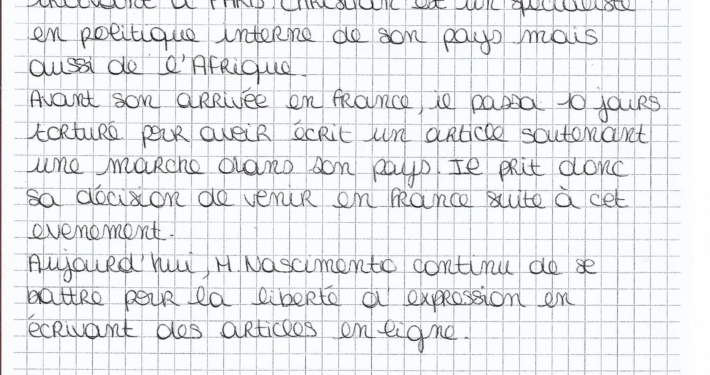 à PARIS, CHRISTIAN est un spécialiste
en politique interne de son pays mais
aussi de l'AFRique.
Avant son ARRIVÉE en fRance, il passa 10 jours
torturé pour avoir écrit un article soutenant
une marche dans son pays. Il prit donc
sa décision de venir en fRance suite à cet
evenement.
Aujourd'hui, M. Nascimento continu de se
battre pour la liberté d'expression en
écrivant des articles en ligne.